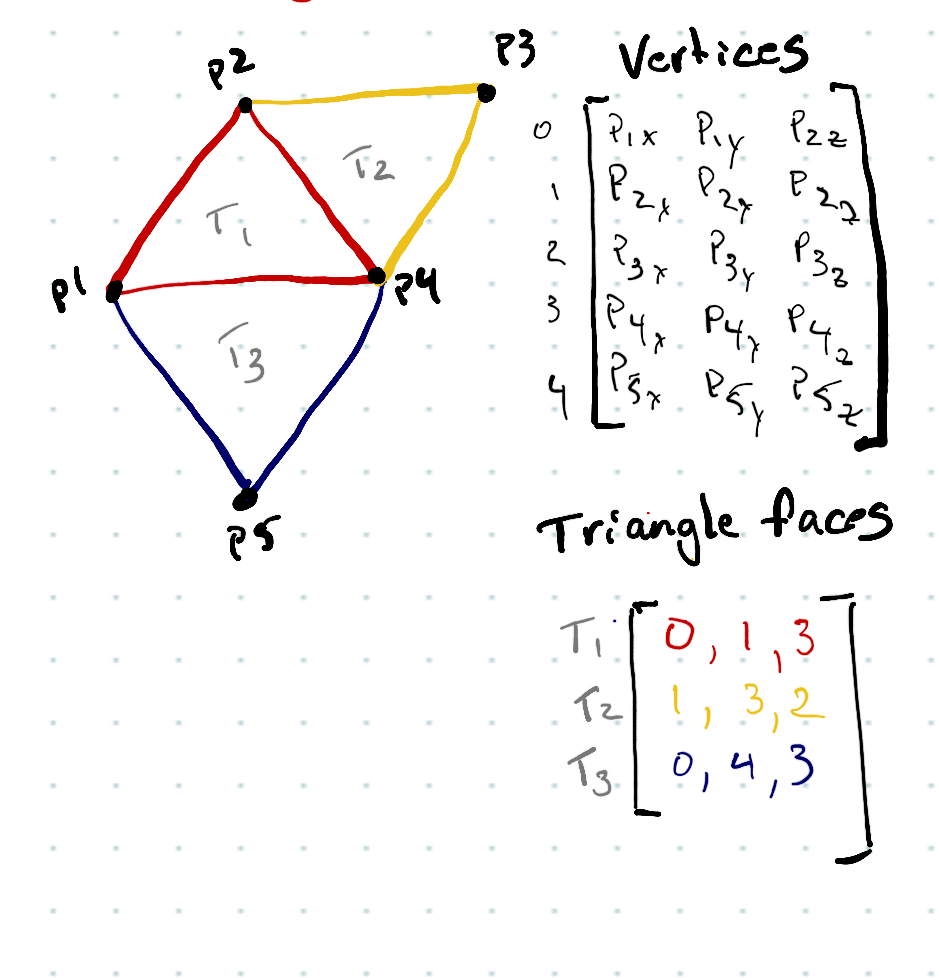 P2
P3
T1
T2
P1
P4
T3
P5
Vertices
0 P1x P1y P2z
1 P2x P2y P2z
2 P3x P3y P3z
3 P4x P4y P4z
4 P5x P5y P5z
Triangle faces
T1 0, 1, 3
T2 1, 3, 2
T3 0, 4, 3